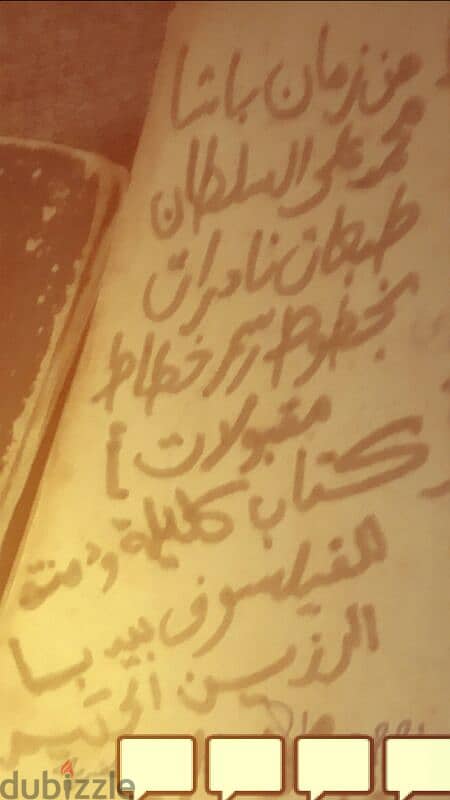 من زمان باشا
محمد علي السلطان
طبعات نادرات
بخطوط رسم خطاط
مقبولات
كتاب كليلة ودمنة
للفيلسوف بيدبا
الرزين
dubizzle